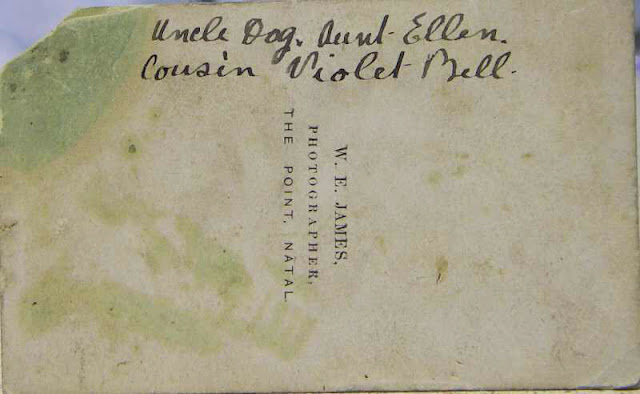 Uncle Dog. Aunt Ellen.
Cousin Violet Bell.
W. E. JAMES,
PHOTOGRAPHER,
THE POINT, NATAL.